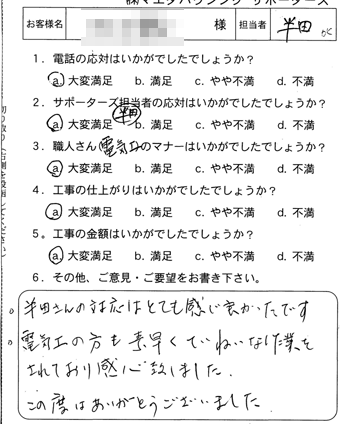 ㈱マエダハウジング サポーターズ
お客様名 様 担当者 半田
1．電話の応対はいかがでしたでしょうか？
a. 大変満足 b. 満足 c. やや不満 d. 不満
2．サポーターズ担当者の応対はいかがでしたでしょうか？
半田
a. 大変満足 b. 満足 c. やや不満 d. 不満
3．職人さん 電気工のマナーはいかがでしたでしょうか？
a. 大変満足 b. 満足 c. やや不満 d. 不満
4．工事の仕上がりはいかがでしたでしょうか？
a. 大変満足 b. 満足 c. やや不満 d. 不満
5。工事の金額はいかがでしたでしょうか？
a. 大変満足 b. 満足 c. やや不満 d. 不満
6．その他、ご意見・ご要望をお書き下さい。
半田さんの対応はとても感じ良かったです
電気工の方も素早くていねいな作業を
されており感心致しました．
この度はありがとうございました．